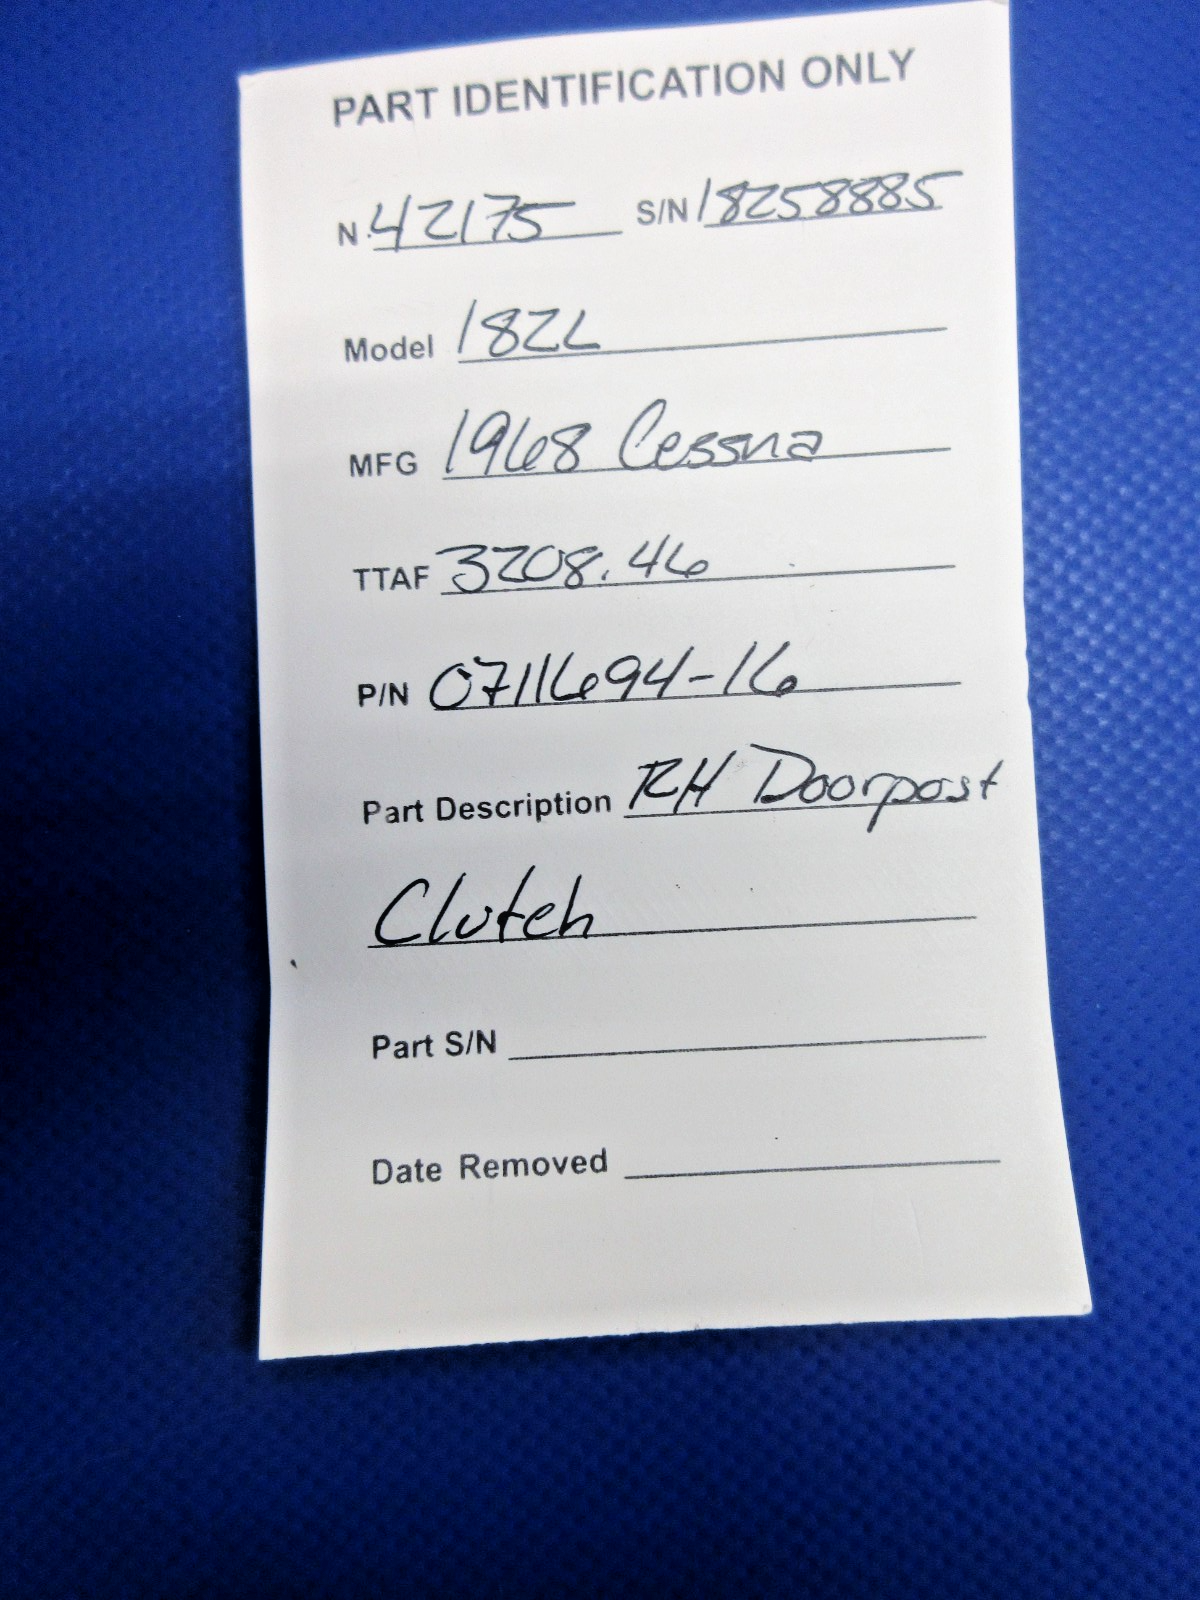 PART IDENTIFICATION ONLY
N 42175 S/N 18258885
Model 182L
MFG 1968 Cessna
TTAF 3208.46
P/N 0711694-16
Part Description RH Doorpost
Clutch
Part S/N
Date Removed